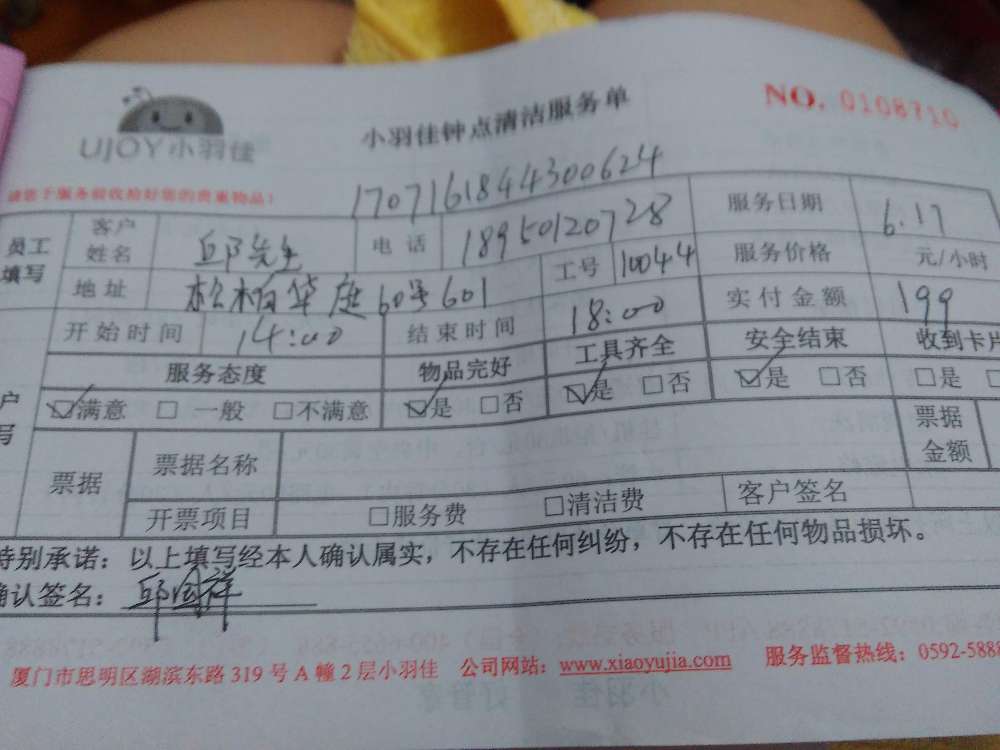 UJOY小羽佳
小羽佳钟点清洁服务单
NO. 0108710
请您于服务前收拾好您的贵重物品!
1707161844300624
员工填写 客户姓名 邱先生 电话 18950120728 服务日期 6.17
地址 松柏华庭60号601 工号 10044 服务价格 元/小时
开始时间 14:00 结束时间 18:00 实付金额 199
服务态度 物品完好 工具齐全 安全结束 收到卡片
☑满意 □一般 □不满意 ☑是 □否 ☑是 □否 ☑是 □否 □是
票据 票据名称 票据金额
开票项目 □服务费 □清洁费 客户签名
特别承诺：以上填写经本人确认属实，不存在任何纠纷，不存在任何物品损坏。
确认签名：邱国祥
厦门市思明区湖滨东路 319 号 A 幢 2 层小羽佳 公司网站：www.xiaoyujia.com 服务监督热线：0592-5888